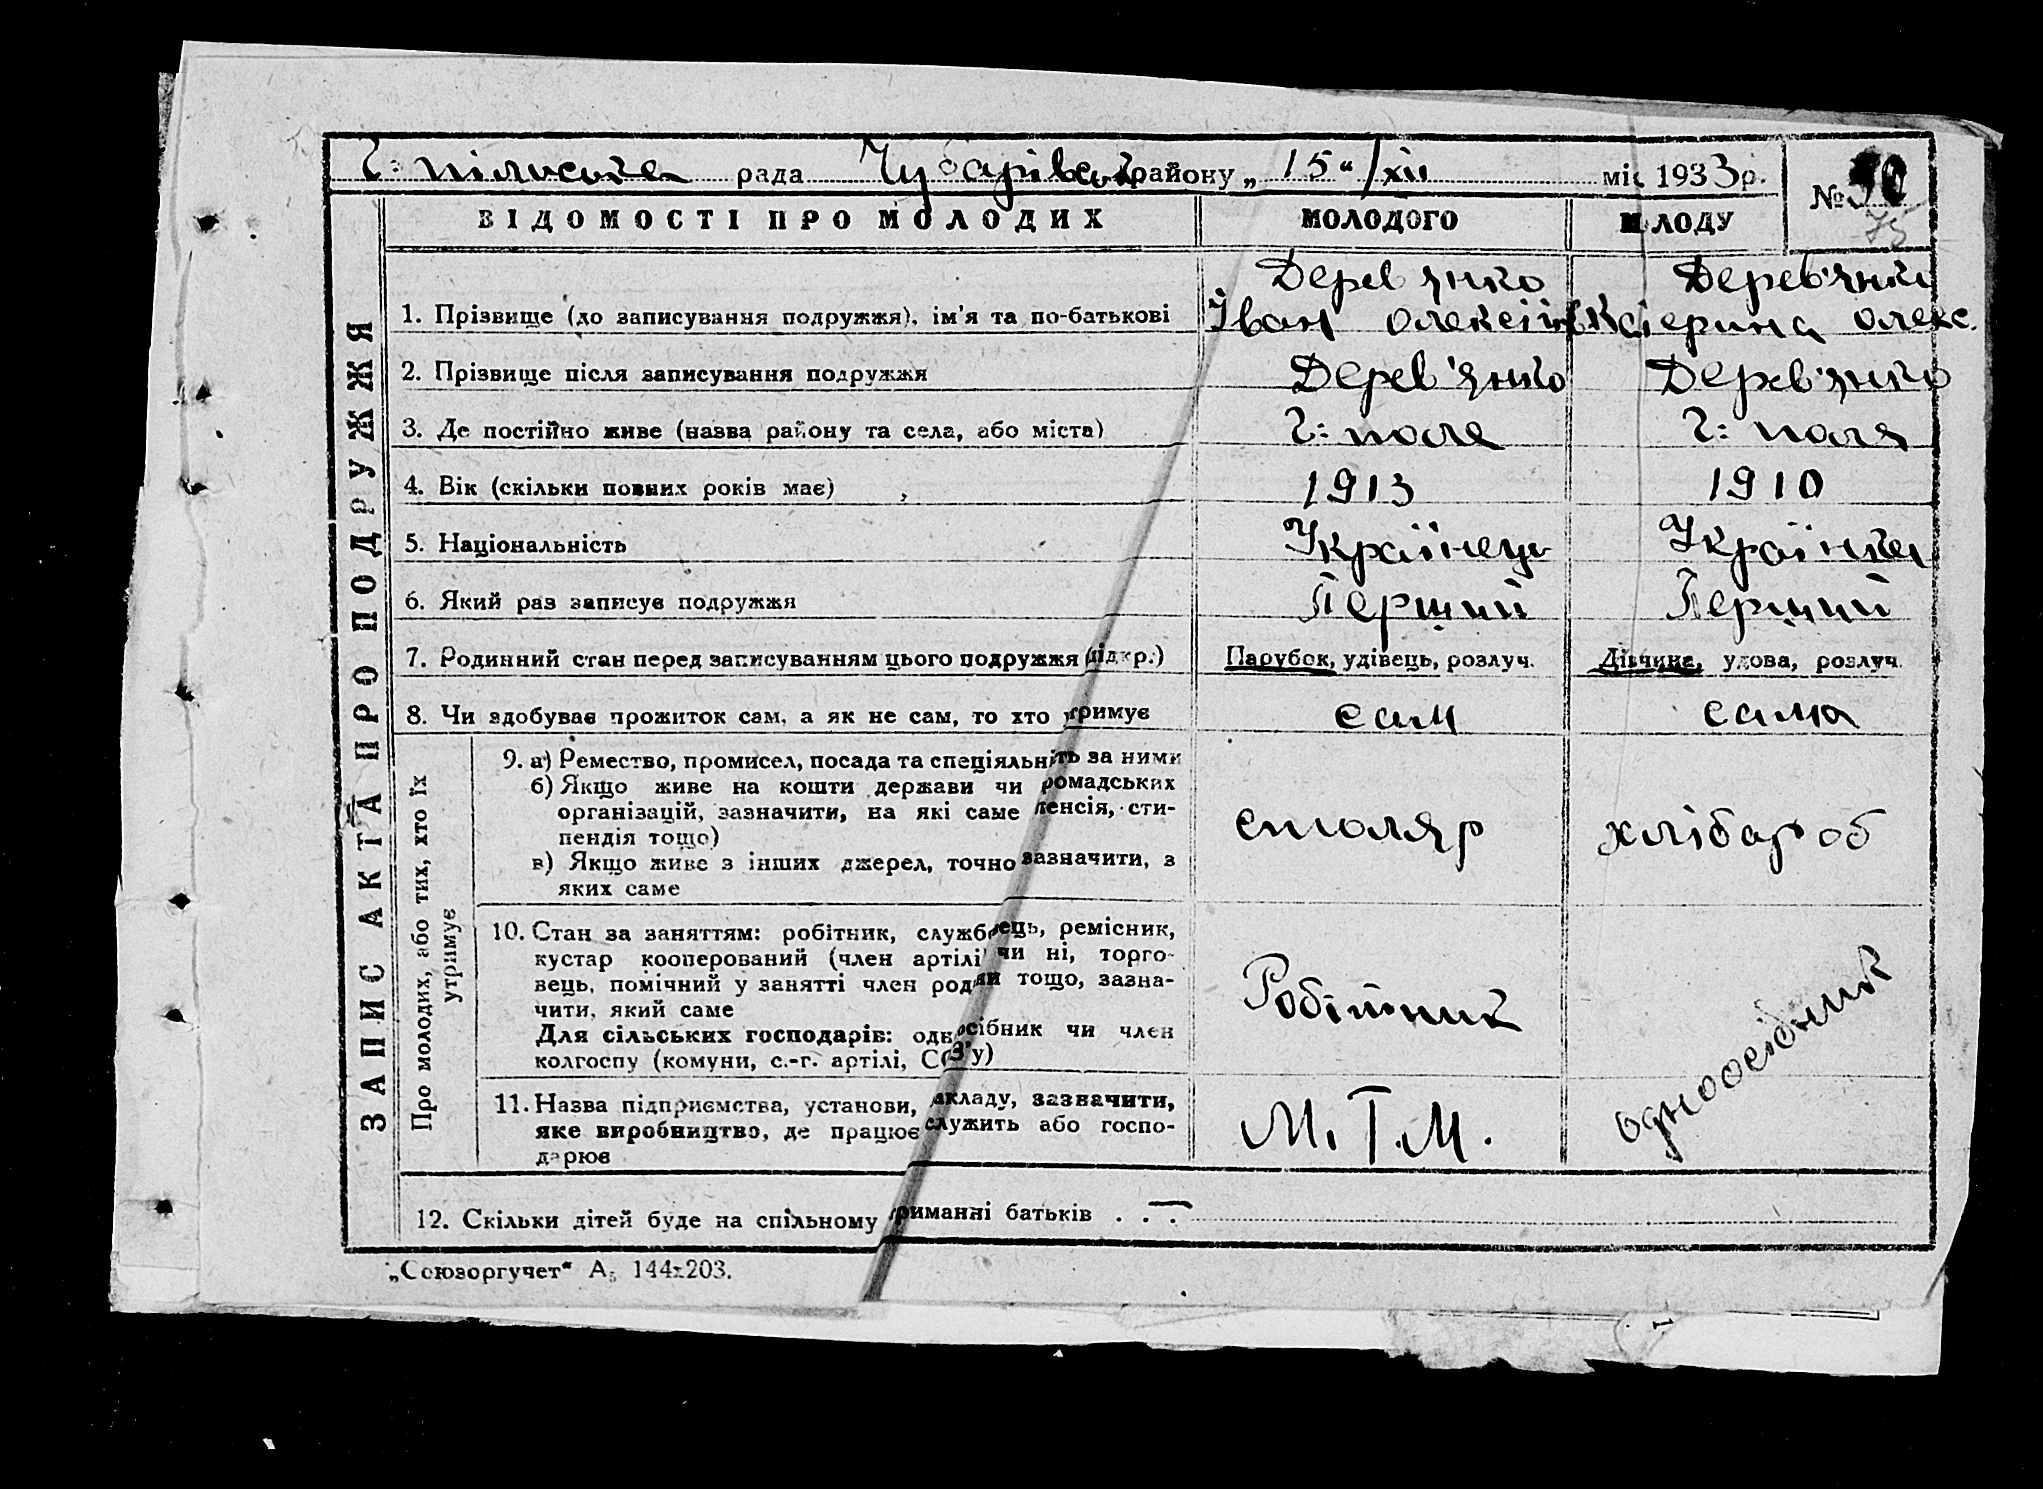 Г: пільська рада Чубарівськ району „15“/XII міс 1933 р.
№ 50
75
ВІДОМОСТІ ПРО МОЛОДИХ МОЛОДОГО МОЛОДУ
ЗАПИС АКТА ПРО ПОДРУЖЖЯ
Дерев'янко Дерев'янко
1. Прізвище (до записування подружжя), ім'я та по-батькові Іван Олексійов Катерина Олекс.
2. Прізвище після записування подружжя Дерев'янко Дерев'янко
3. Де постійно живе (назва району та села, або міста) Г: поле Г: поля
4. Вік (скільки повних років має) 1913 1910
5. Національність Українець Українка
6. Який раз записує подружжя Перший Перший
7. Родинний стан перед записуванням цього подружжя (підкр.) Парубок, удівець, розлуч. Дівчина, удова, розлуч.
8. Чи здобуває прожиток сам, а як не сам, то хто утримує сам сама
Про молодих, або тих, хто їх
утримує
9. а) Ремество, промисел, посада та спеціяльність за ними
б) Якщо живе на кошти держави чи громадських
організацій, зазначити, на які саме пенсія, сти-
пендія тощо)
в) Якщо живе з інших джерел, точно зазначити, з
яких саме
столяр хлібароб
10. Стан за заняттям: робітник, службовець, ремісник,
кустар кооперований (член артілі) чи ні, торго-
вець, помічний у занятті член родини тощо, зазна-
чити, який саме
Для сільських господарів: одноосібник чи член
колгоспу (комуни, с.-г. артілі, СОЗ'у)
Робітник одноосібник
11. Назва підприємства, установи, закладу, зазначити,
яке виробництво, де працює служить або госпо-
дарює
М.Т.М.
12. Скільки дітей буде на спільному триманні батьків . — .
„Союзоргучет“ А5 144х203.